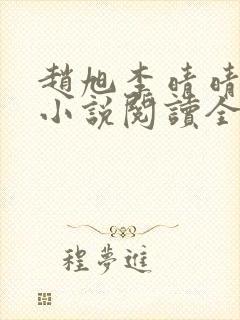 趙旭李晴晴
小說閱讀全
程夢進